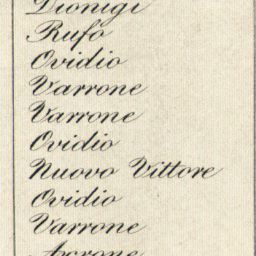 Dionigi
Rufo
Ovidio
Varrone
Varrone
Ovidio
Nuovo Vittore
Ovidio
Varrone